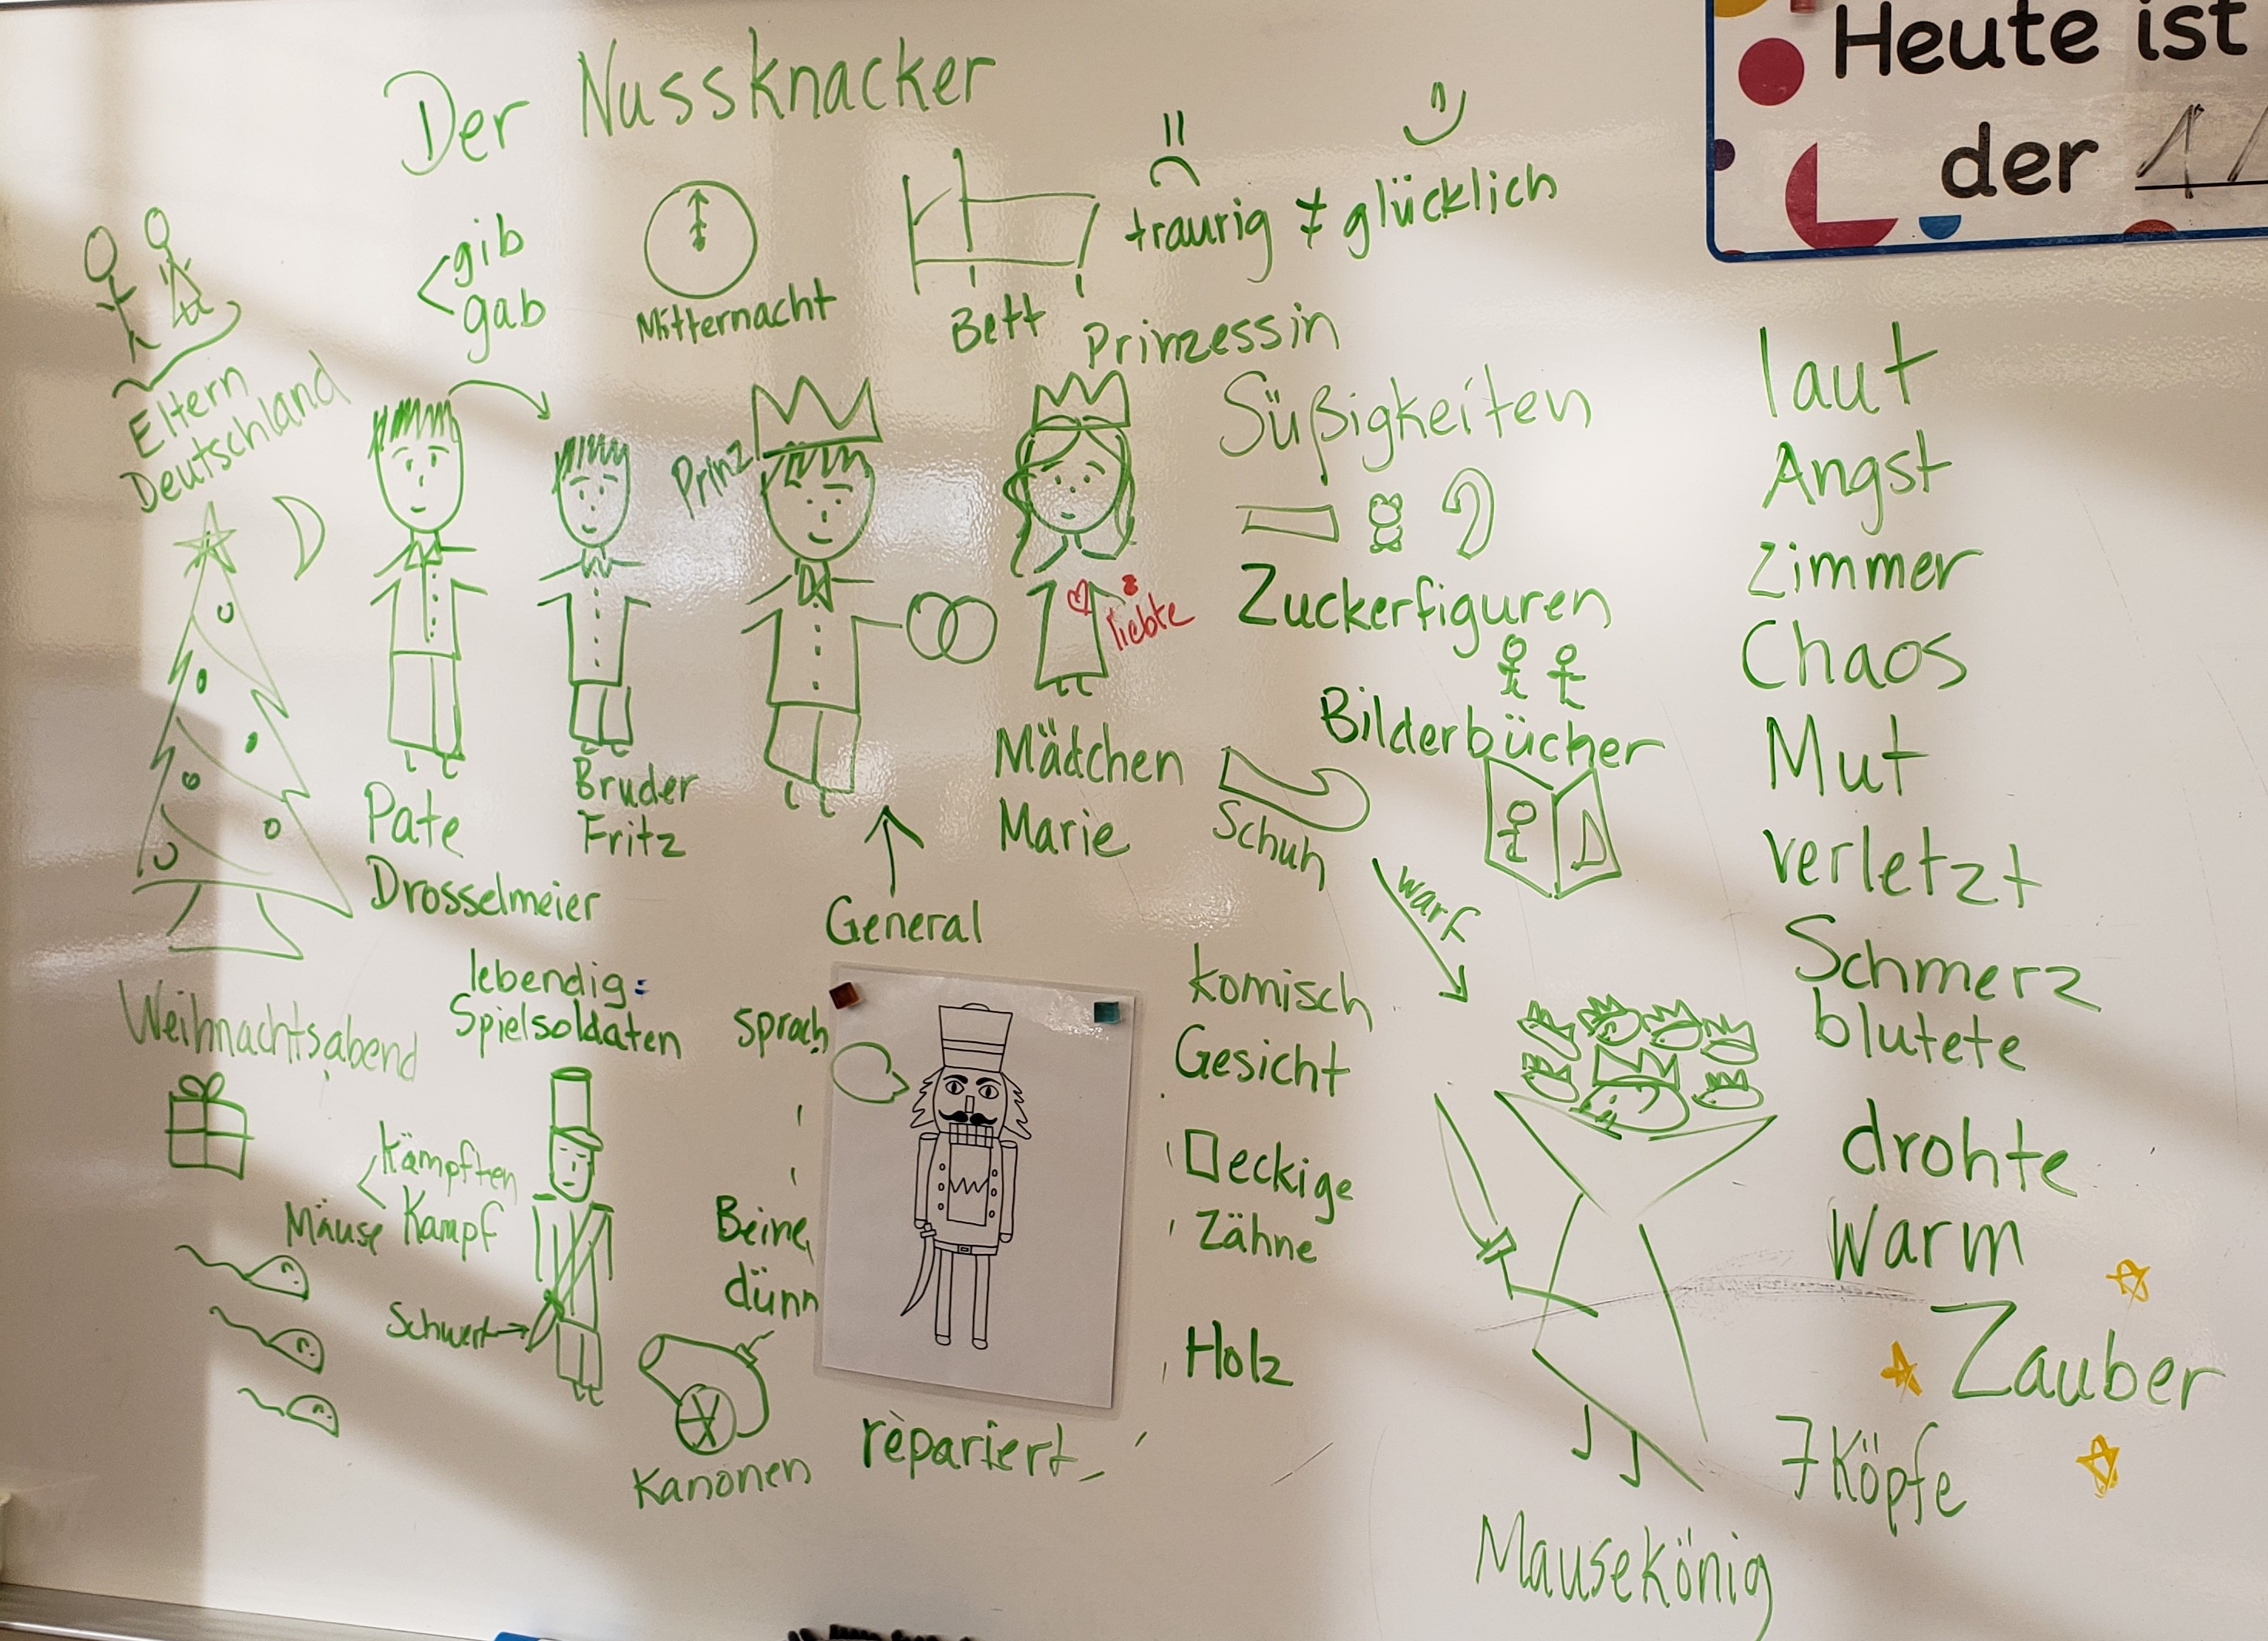 Der Nussknacker
Heute ist
der
gib
gab
Mitternacht
Bett
traurig ≠ glücklich
Eltern
Deutschland
Prinz
Prinzessin
liebte
Süßigkeiten
Zuckerfiguren
Bilderbücher
Pate
Drosselmeier
Bruder
Fritz
General
Mädchen
Marie
Schuh
warf
Weihnachtsabend
lebendig:
Spielsoldaten
kämpften
Kampf
Mäuse
Schwert
Kanonen
sprach
Beine
dünn
repariert
komisch
Gesicht
eckige
Zähne
Holz
laut
Angst
Zimmer
Chaos
Mut
verletzt
Schmerz
blutete
drohte
Warm
Zauber
7 Köpfe
Mausekönig